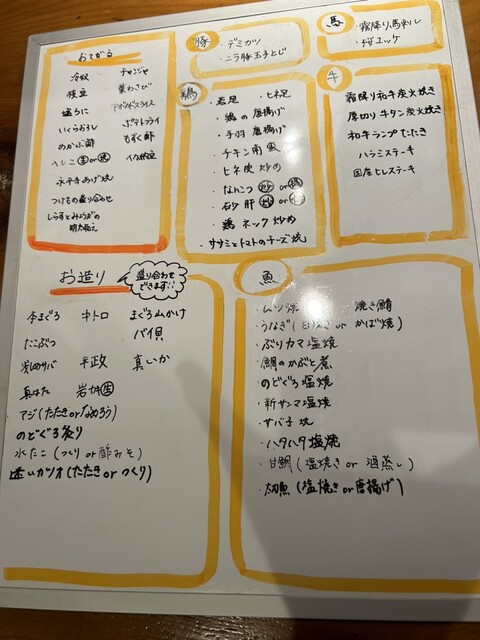 おてがる
冷奴 チャンジャ
枝豆 葉わさび
塩うに アボカドスライス
いくらおろし ポテトフライ
めかぶ酢 もずく酢
へしこ 生 or 焼
永平寺あげ焼
つけもの盛り合わせ
しらすとみょうがの
豚
・デミカツ
・ニラ豚玉子とじ
馬
・霜降り馬刺し
・桜ユッケ
鶏
・若足 ・ヒネ足
・鶏の唐揚げ
・手羽唐揚げ
・チキン南蛮
・ヒネ皮炒め
・なんこつ 炒 or 揚
・砂肝 炒 or
・鶏ネック炒め
・ササミとトマトのチーズ焼
牛
霜降り和牛炭火焼き
厚切り牛タン炭火焼き
和牛ランプたたき
ハラミステーキ
国産ヒレステーキ
お造り
盛り合わせ
できます!!
本まぐろ 中トロ まぐろ山かけ
たこぶつ バイ貝
〆サバ 平政 真いか
真はた 岩がき 生
アジ(たたき or なめろう)
のどぐろ炙り
水たこ(つくり or 酢みそ)
迷いガツオ(たたき or つくり)
魚
・うなぎ( or かば焼)
・ぶりカマ塩焼
・鯛のかぶと煮
・のどぐろ塩焼
・新サンマ塩焼
・サバ子焼
・ハタハタ塩焼
・甘鯛(塩焼き or 酒蒸し)
・太刀魚(塩焼き or 唐揚げ)